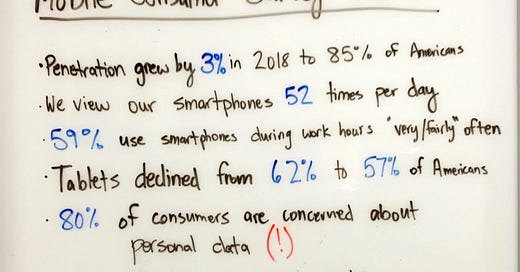 Mobile Consumer
· Penetration grew by 3% in 2018 to 85% of Americans
· We view our smartphones 52 times per day
· 59% use smartphones during work hours "very/fairly" often
· Tablets declined from 62% to 57% of Americans
· 80% of consumers are concerned about
personal data (!)